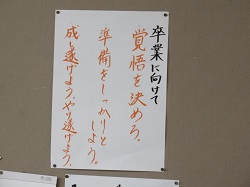 卒業に向けて
覚悟を決めろ。
準備をしっかりと
しよう。
成し遂げよう、やり遂げよう